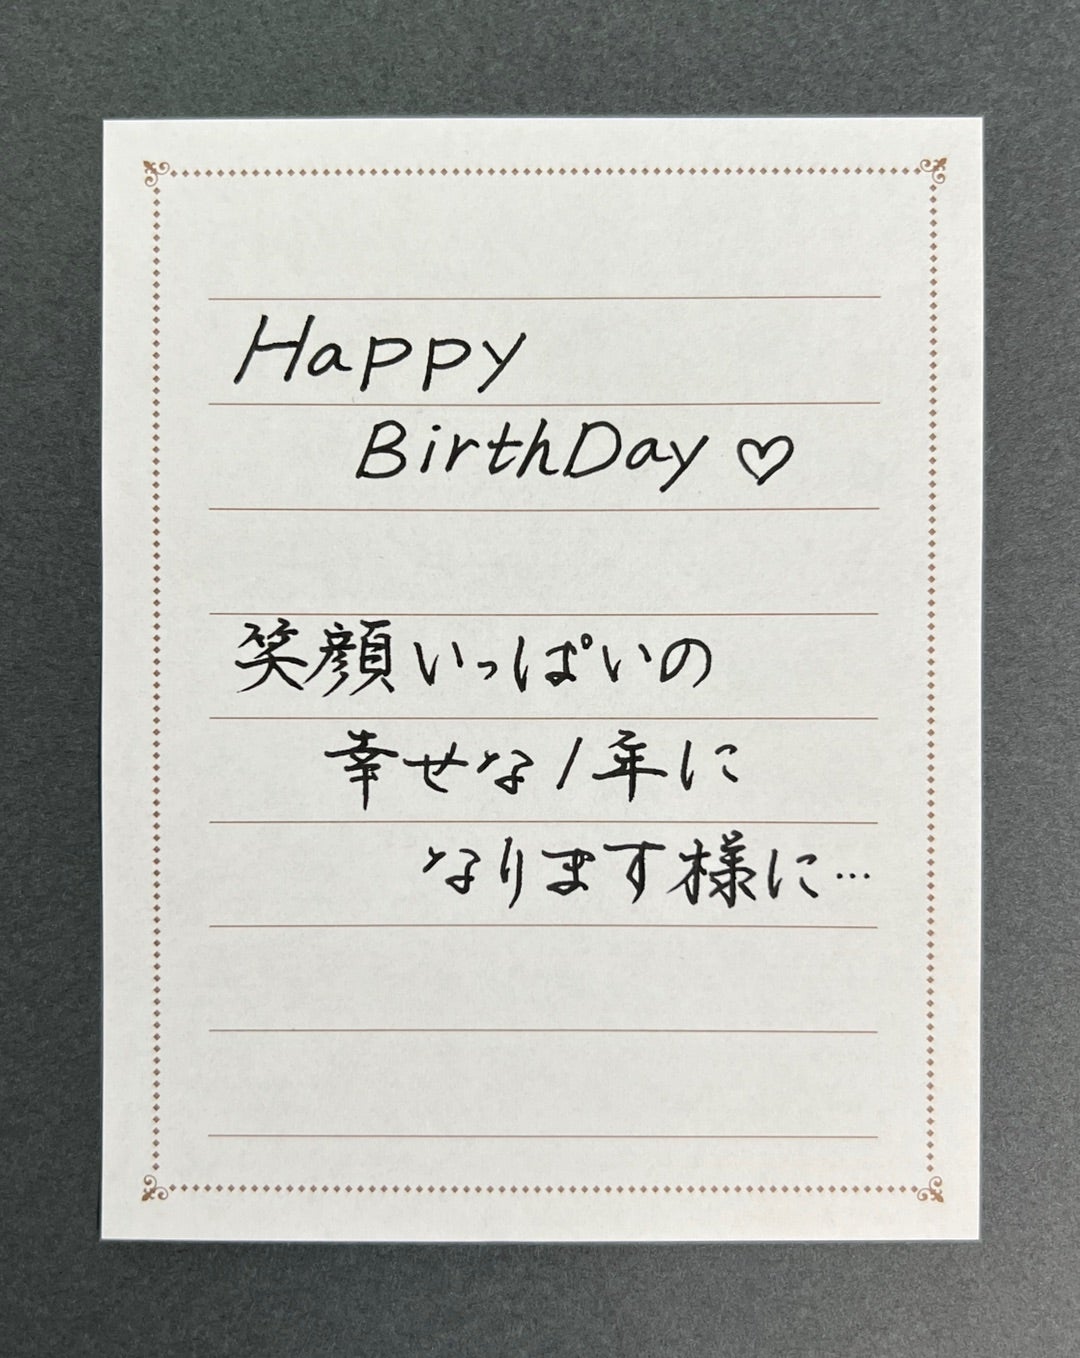 Happy
BirthDay ♡
笑顔いっぱいの
幸せな1年に
なります様に…